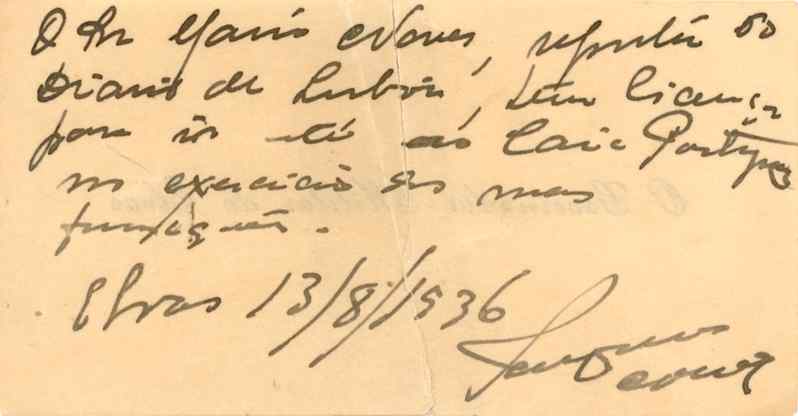 O Sr Mario Neves, reporter do
Diario de Lisboa, tem licença
para ir até ao Caia Portuguez
no exercicio das suas
funcções.
Elvas 13/8/1936